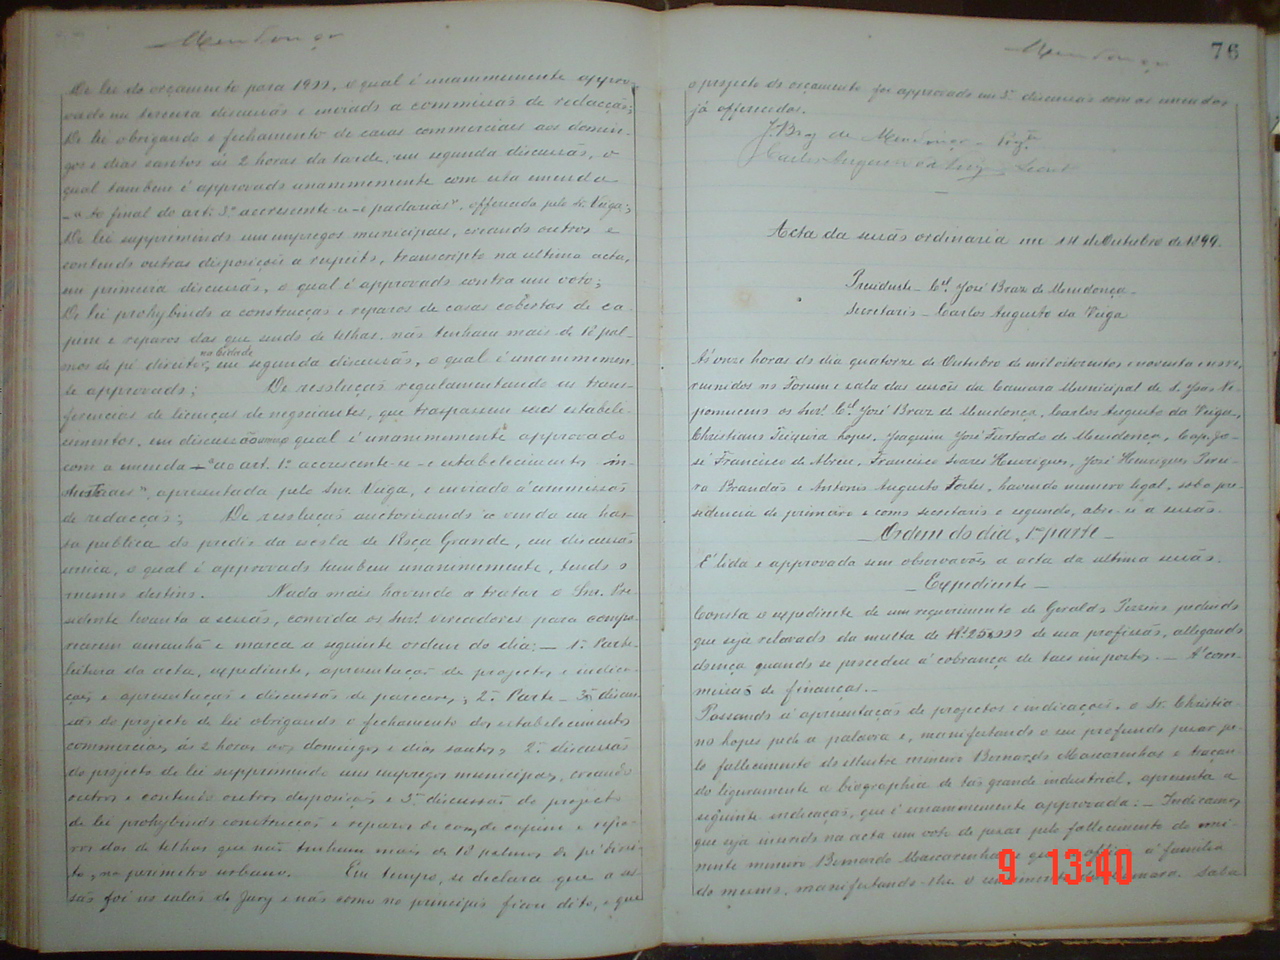 Mendonça
De lei do orçamento para 1900, o qual é unanimemente appro-
vado em terceira discussão e enviado a commissão de redacção;
De lei obrigando o fechamento de casas commerciaes aos domin-
gos e dias santos ás 2 horas da tarde, em segunda discussão, o
qual tambem é approvado unanimemente com esta emenda
- ao final do art. 3º accrescente-se - e padarias", offerecida pelo Sr. Veiga;
De lei supprimindo uns empregos municipaes, creando outros e
contendo outras disposições a respeito, transcripto na ultima acta,
em primeira discussão, o qual é approvado contra um voto;
De lei prohybindo a construcção e reparos de casas cobertas de ca-
pim e reparos das que sendo de telhas, não tenham mais de 12 pal-
mos de pé direito, na cidade, em segunda discussão, o qual é unanimemen-
te approvado; De resolução regulamentando as trans-
ferencias de licenças de negociantes, que traspassem seus estabele-
cimentos, em discussão unica o qual é unanimemente approvado
com a emenda - "ao art. 1º accrescente-se - e estabelecimentos in-
dustriaes", apresentada pelo Snr. Veiga, e enviado á commissão
de redacção; De resolução auctorisando a venda em has-
ta publica do predio da escola de Roça Grande, em discussão
unica, o qual é approvado tambem unanimemente, tendo o
mesmo destino. Nada mais havendo a tratar o Snr. Pre-
sidente levanta a sessão, convida os Snrs. vereadores para compa-
recerem amanhã e marca a seguinte ordem do dia: - 1ª Parte
leitura da acta, expediente, apresentação de projectos e indica-
ções e apresentação e discussão de pareceres; 2ª Parte - 3ª discus-
são do projecto de lei obrigando o fechamento dos estabelecimentos
commerciaes ás 2 horas aos domingos e dias santos, 2ª discussão
do projecto de lei supprimindo uns empregos municipaes, creando
outros e contendo outras disposições e 3ª discussão do projecto
de lei prohybindo construcção e reparos de casas de capim e repa-
ros das de telhas que não tenham mais de 12 palmos de pé direi-
to, no perimetro urbano. Em tempo, se declara que a ses-
são foi na sala do Jury e não como no principio ficou dito, e que
Mendonça
76
o projecto do orçamento foi approvado em 3ª discussão com as emendas
já offerecidas.
J. Braz de Mendonça - Presidte
Carlos Augusto da Veiga - Secret
Acta da sessão ordinaria em 14 de Outubro de 1899.
Presidente - Cel. José Braz de Mendonça -
Secretario - Carlos Augusto da Veiga
Ás onze horas do dia quatorze de Outubro de mil oitocentos e noventa e nove,
reunidos no Forum e sala das sessões da Camara Municipal de S. João Ne-
pomuceno os Snrs. Cel. José Braz de Mendonça, Carlos Augusto da Veiga,
Christiano Teixeira Lopes, Joaquim José Furtado de Mendonça, Cap. Jo-
sé Francisco de Abreu, Francisco Soares Henriques, José Henriques Perei-
ra Brandão e Antonio Augusto Fortes, havendo numero legal, sob a pre-
sidencia do primeiro e como secretario o segundo, abre-se a sessão.
- Ordem do dia, 1ª parte -
É lida e approvada sem observações a acta da ultima sessão.
- Expediente -
Consta o expediente de um requerimento de Geraldo Perrim pedindo
que seja relevado da multa de de sua profissão, allegando
doença quando se procedeu á cobrança de taes impostos. - Á com-
missão de finanças. -
Passando á apresentação de projectos e indicações, o Sr. Christia-
no Lopes pede a palavra e, manifestando o seu profundo pezar pe-
lo fallecimento do illustre mineiro Bernardo Mascarenhas e traçan-
do ligeiramente a biographia de tão grande industrial, apresenta a
seguinte indicação, que é unanimemente approvada: - Indicamos
que seja inserido na acta um voto de pezar pelo fallecimento do emi-
nente mineiro Bernardo Mascarenhas e que officie á familia
do mesmo, manifestando-lhe o da Camara. Sala
9 13:40